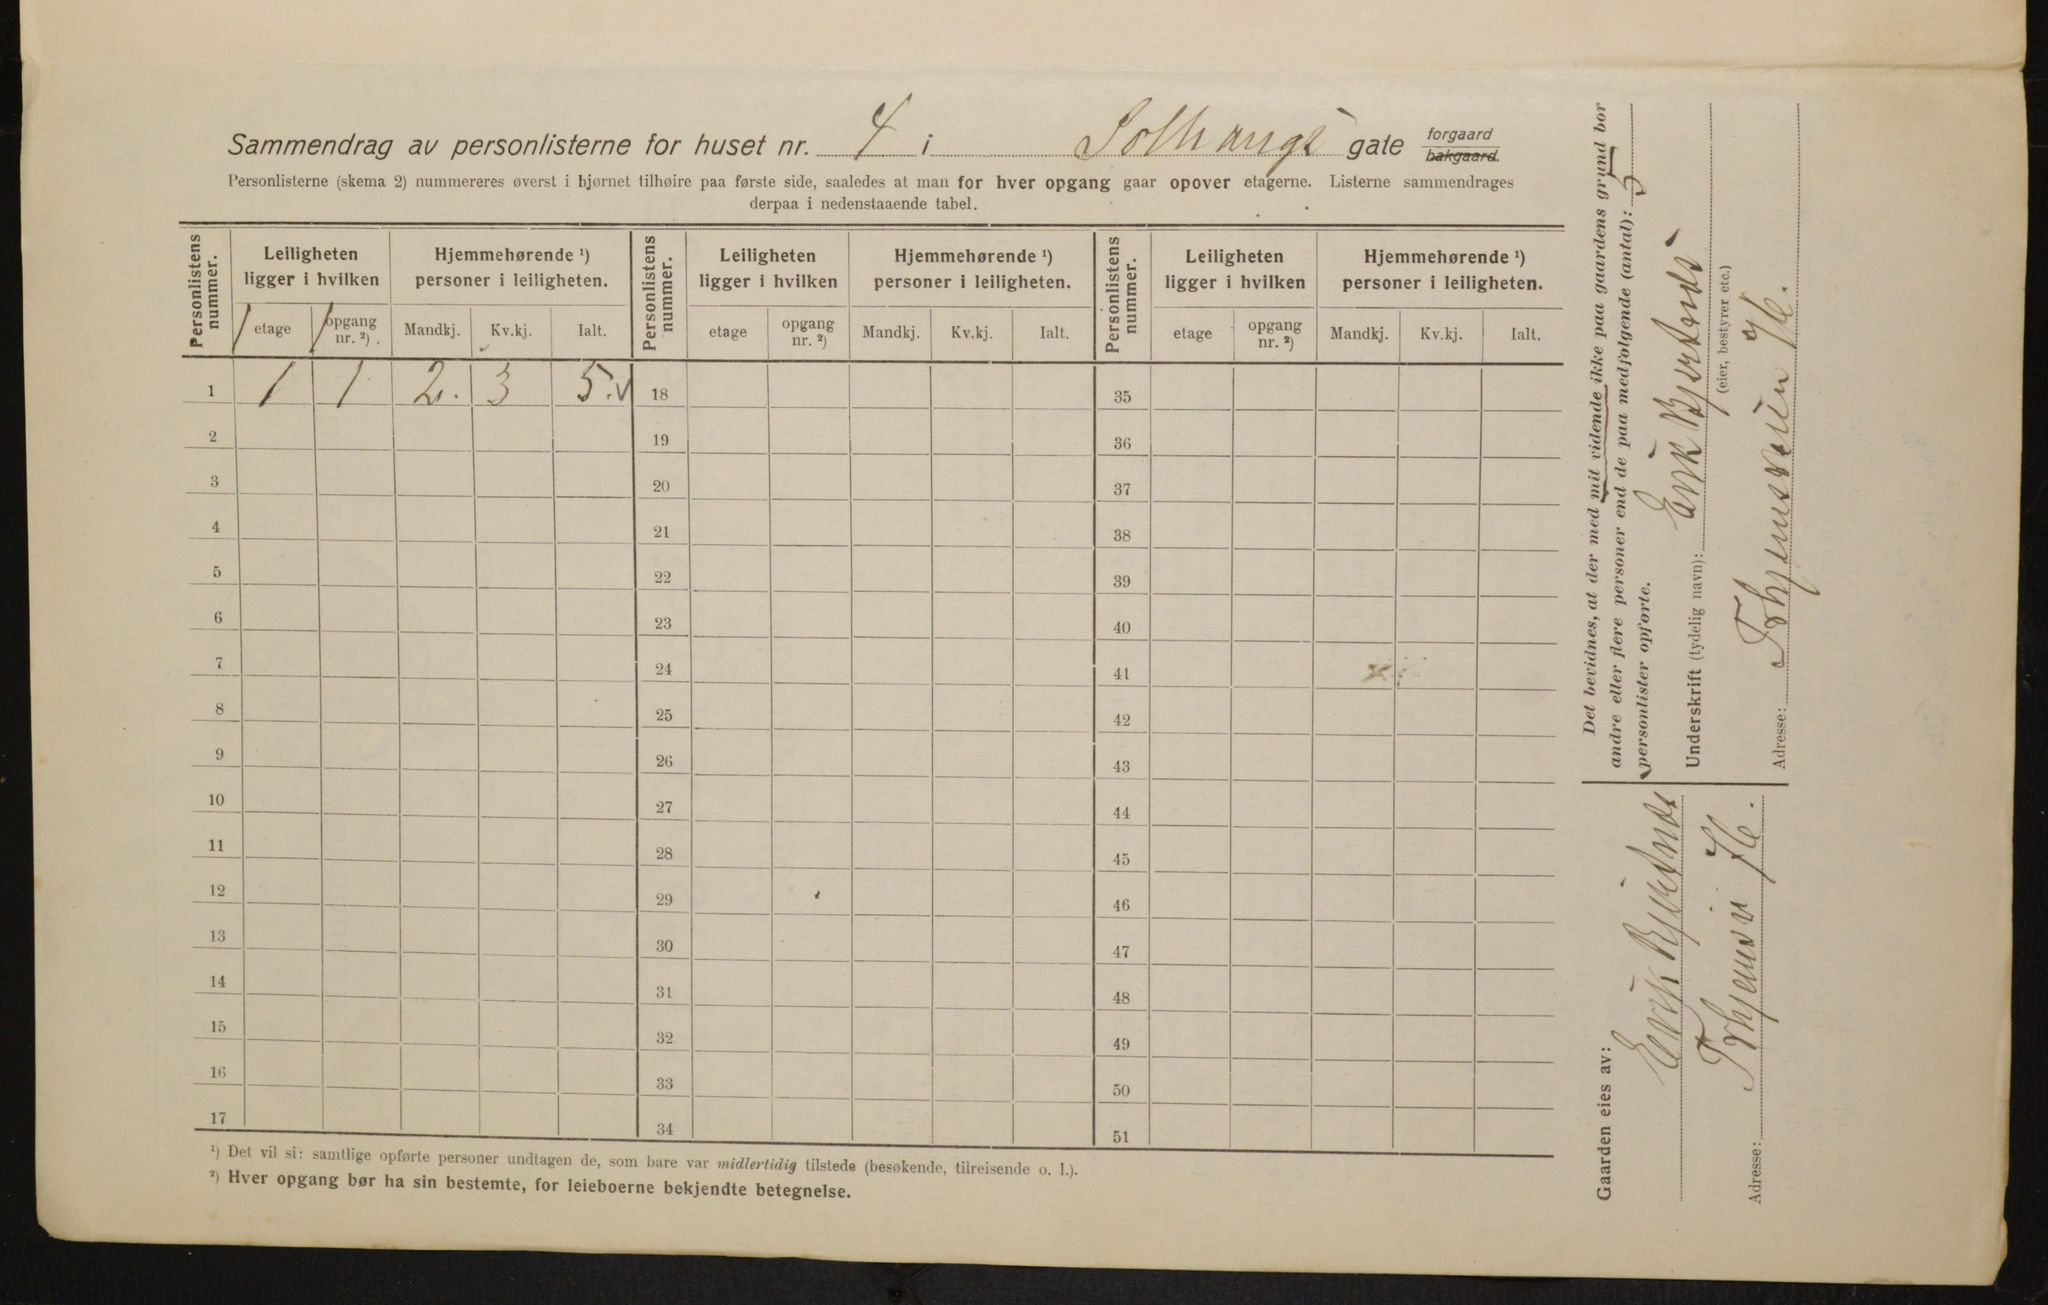 Sammendrag av personlisterne for huset nr. 4 i Solhaugs gate forgaard bakgaard.
Personlisterne (skema 2) nummereres øverst i hjørnet tilhøire paa første side, saaledes at man for hver opgang gaar opover etagerne. Listerne sammendrages
derpaa i nedenstaaende tabel.
Personlistens nummer. Leiligheten ligger i hvilken Hjemmehørende ¹) personer i leiligheten. Personlistens nummer. Leiligheten ligger i hvilken Hjemmehørende ¹) personer i leiligheten. Personlistens nummer. Leiligheten ligger i hvilken Hjemmehørende ¹) personer i leiligheten.
etage opgang nr. ²). Mandkj. Kv.kj. Ialt. etage opgang nr. ²) Mandkj. Kv.kj. Ialt. etage opgang nr. ²) Mandkj. Kv.kj. Ialt.
1 1 1 2. 3 5. v 18 35
2 19 36
3 20 37
4 21 38
5 22 39
6 23 40
7 24 41
8 25 42
9 26 43
10 27 44
11 28 45
12 29 46
13 30 47
14 31 48
15 32 49
16 33 50
17 34 51
¹) Det vil si: samtlige opførte personer undtagen de, som bare var midlertidig tilstede (besøkende, tilreisende o. l.).
²) Hver opgang bør ha sin bestemte, for leieboerne bekjendte betegnelse.
Det bevidnes, at der med mit vidende ikke paa gaardens grund bor
andre eller flere personer end de paa medfølgende (antal): 5
personlister opførte.
Underskrift (tydelig navn):
(eier, bestyrer etc.)
Adresse:
Gaarden eies av:
Adresse: